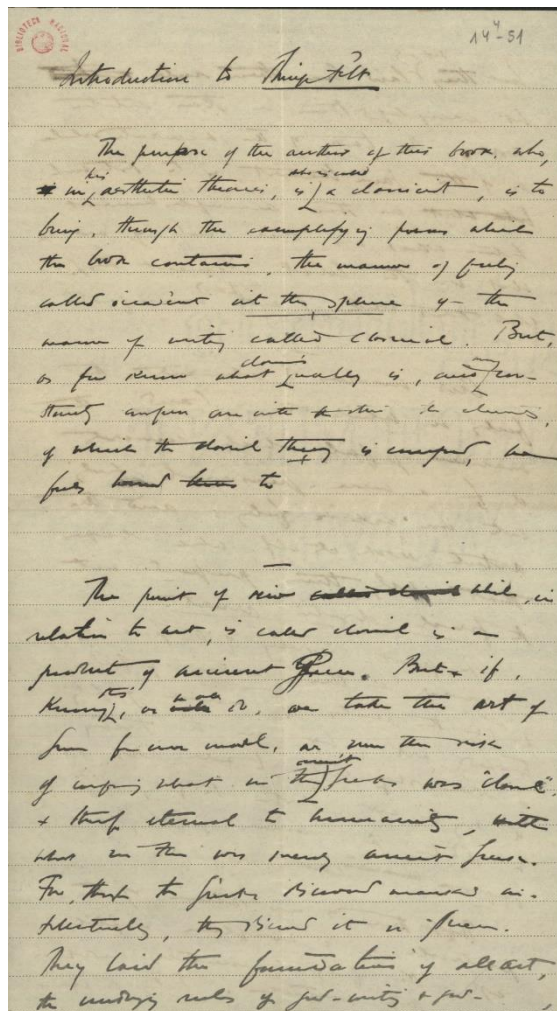 BIBLIOTECA NACIONAL
14⁴-51
Introduction to Things Felt
The purpose of the author of this book, who,
in his aesthetic theories, is a classicist, is to
bring, through the exemplifying poems which
this book contains, the manner of feeling
called at the sphere of the
manner of writing called classical. But,
as few know what classic really is, and
with the elements,
of which the classical theory is composed, he
feels to
The point of view called classical which, in
relation to art, is called classical is a
product of ancient Greece. But if,
Knowing this, we take the art of
Greece for our model, we run the risk
of confusing what in the ancient Greeks was "classic",
& therefore eternal to humanity, with
what in them was merely ancient Greece.
For, though the Greeks discovered mankind in-
tellectually, they discovered it in Greece.
They laid the foundations of all art,
the underlying rules of good-writing & good-